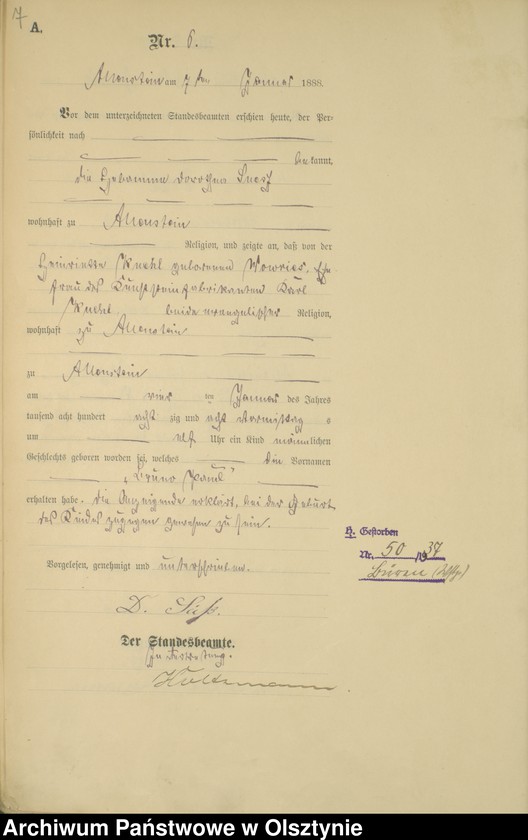 7
A.
Nr. 6.
Allenstein am 7 ten Januar 1888.
Vor dem unterzeichneten Standesbeamten erschien heute, der Per-
sönlichkeit nach
be kannt,
die Hebamme Dorothea
wohnhaft zu Allenstein
Religion, und zeigte an, daß von der
Henriette geborenen Ehe-
frau des Kunststeinfabrikanten Karl
beide evangelischer Religion,
wohnhaft zu Allenstein
zu Allenstein
am vier ten Januar des Jahres
tausend acht hundert acht zig und acht Vormittag s
um elf Uhr ein Kind männlichen
Geschlechts geboren worden sei, welches die Vornamen
„Bruno Paul“
erhalten habe. Die Anzeigende erklärt, bei der Geburt
des Kindes zugegen gewesen zu sein.
H. Gestorben
Nr. 50 /1937
Büren (Westf.)
Vorgelesen, genehmigt und unterschrieben.
D. Süß.
Der Standesbeamte.
In Vertretung.
Archiwum Państwowe w Olsztynie